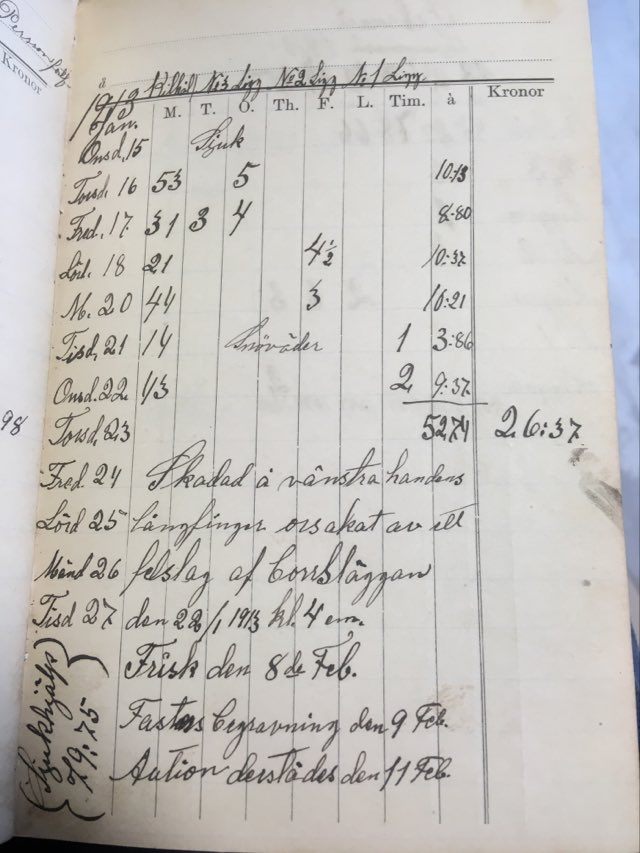 Personsökp
Kronor
98
1913
Jan.
à Kilkil No 3 Ligg No 2 Ligg No 1 Ligg
M. T. O. Th. F. L. Tim. à Kronor
Onsd. 15 Sjuk
Torsd. 16 53 5 10:13
Fred. 17 31 3 4 8:80
Lörd. 18 21 4½ 10:37
M. 20 44 3 10:21
Tisd. 21 14 Snöväder 1 3:86
Onsd. 22 43 2 9:37
Torsd. 23 5274 26:37
Fred 24 Skadad å vänstra handens
Lörd 25 långfinger orsakat av ett
Månd 26 felslag af borrsläggan
Tisd 27 den 22/1 1913 kl. 4 em.
Frisk den 8de Feb.
Fasters begravning den 9 Feb.
Aution derstädes den 11 Feb.
(Sjukhjälp)
79:75